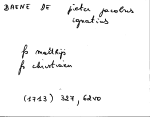 BAENE DE pieter jacobus
ignatius
fs mathijs
fs christiaen
(1713) 327, 62v0